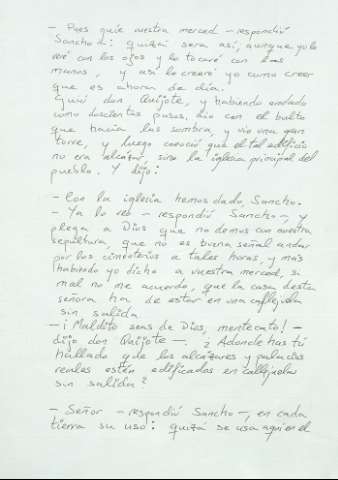 - Pues guíe vuestra merced - respondió
Sancho -: quizá será así, aunque yo lo
veré con los ojos y lo tocaré con las
manos, y así lo creeré yo como creer
que es ahora de día.
Guió don Quijote, y habiendo andado
como doscientos pasos, dio con el bulto
que hacía la sombra, y vio una gran
torre, y luego conoció que el tal edificio
no era alcázar, sino la iglesia principal del
pueblo. Y dijo:
- Con la iglesia hemos dado, Sancho.
- Ya lo veo - respondió Sancho -, y
plega a Dios que no demos con nuestra
sepultura, que no es buena señal andar
por los cimenterios a tales horas, y más
habiendo yo dicho a vuestra merced, si
mal no me acuerdo, que la casa desta
señora ha de estar en una callejuela
sin salida
- ¡Maldito seas de Dios, mentecato! -
dijo don Quijote -. ¿Adónde has tú
hallado que los alcázares y palacios
reales estén edificados en callejuelas
sin salida?
- Señor - respondió Sancho -, en cada
tierra su uso: quizá se usa aquí en el